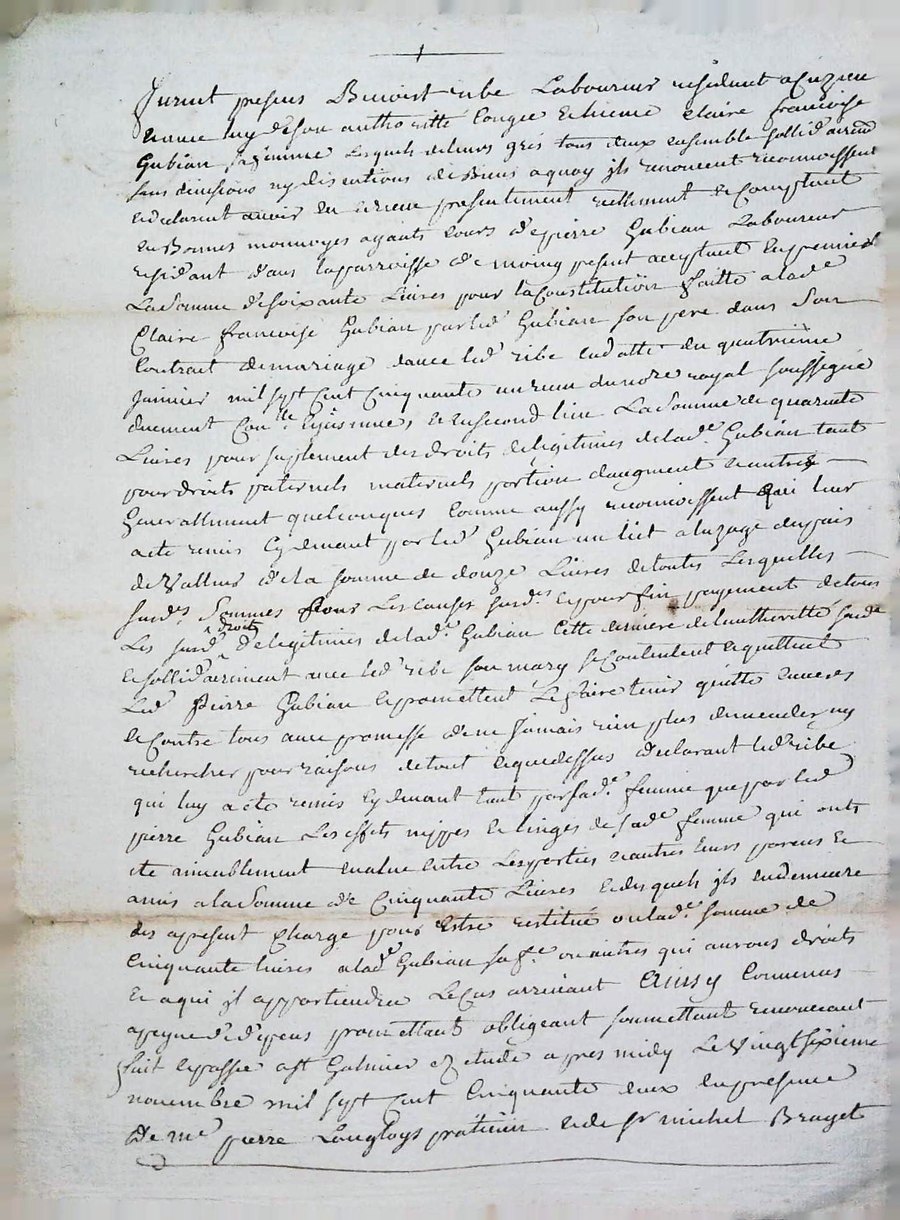 furent presens Benoist ribe Laboureur residant a Cuzieu
avec luy de son authoritté Congée et licence Claire françoise
Gubian sa femme Lesquels de leurs grés tous deux ensemble sollid airemt
sans divisions ny discutions de Biens a quoy jls renoncent reconnoissent
et declarent avoir eu et receu presentement reellement et Comptant
en Bonnes monnoyes ayants Cours de pierre Gubian Laboureur
residant dans la parroisse de moing present acceptant En premier
La Somme de Soixante Livres pour la Constitution faitte a lade
Claire françoise Gubian par led Gubian son pere dans Son
Contrat de mariage d'avec led ribe en datte du quatrième
janvier mil sept Cent Cinquante un receu du nore royal soussigné
duement Conlle et jnsinué, et En second lieu La Somme de quarente
Livres pour suplement des droits de legitimes de lade Gubian tant
pour droits paternels maternels portion d'augment et autres
Generallement quelconques Comme aussy reconnoissent qui leur
a ete remis Cy devant par led Gubian un lict a luzage du païs
de Valleur de la somme de douze Livres de toutes Lesquelles
susdes Sommes pour Les causes susdes et pour fin payement de tous
Les susds droits de legitimes de lade Gubian Cette derniere de l'authoritté susde
et sollid airement avec led ribe son mary se Contentent et quittent
Led Pierre Gubian et promettent Le faire tenir quitte envers
et Contre tous avec promesse de ne jamais rien plus demender ny
rechercher pour raisons de tout ce que dessus declarant led ribe
qui luy a ete remis Cy devant tant par sade femme que par led
pierre Gubian Les effets nippes et linges de sade femme qui ont
ete amiablement evalué entre Les parties et autres leurs parens et
amis a la Somme de Cinquante Livres et desquels jls en demeure
des apresent Charge pour Estre restitué ou lade somme de
Cinquante livres a lade Gubian sa fe ou autres qui auront droits
et a qui jl appartiendra Le Cas arrivant Ainsy Convenus
a peyne de depens promettant obligeant soumettant renonceant
fait et passé a st Galmier ez etude apres midy Le Vingt sixieme
novembre mil sept cent Cinquante deux En presence
de me pierre Langloys praticien et de sr michel Brayet